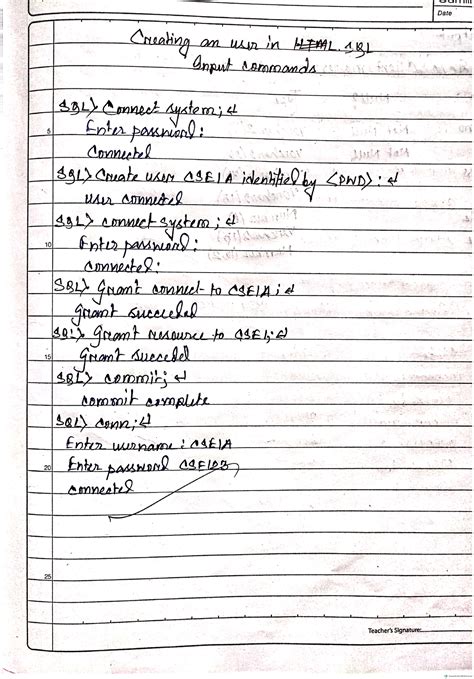 Date
Creating an user in HTML. SQL
Input commands
SQL> Connect system; ↵
5
Enter password:
Connected
SQL> Create user CSE1A identified by <PWD>: ↵
user connected
SQL> connect system; ↵
10
Enter password:
connected:
SQL> Grant connect to CSE1A; ↵
Grant succeeded
SQL> Grant resource to CSE1; ↵
15
Grant succeded
SQL> commit; ↵
commit complete
SQL> conn; ↵
Enter username: CSE1A
20
Enter password CSE123
connected
25
Teacher's Signature: